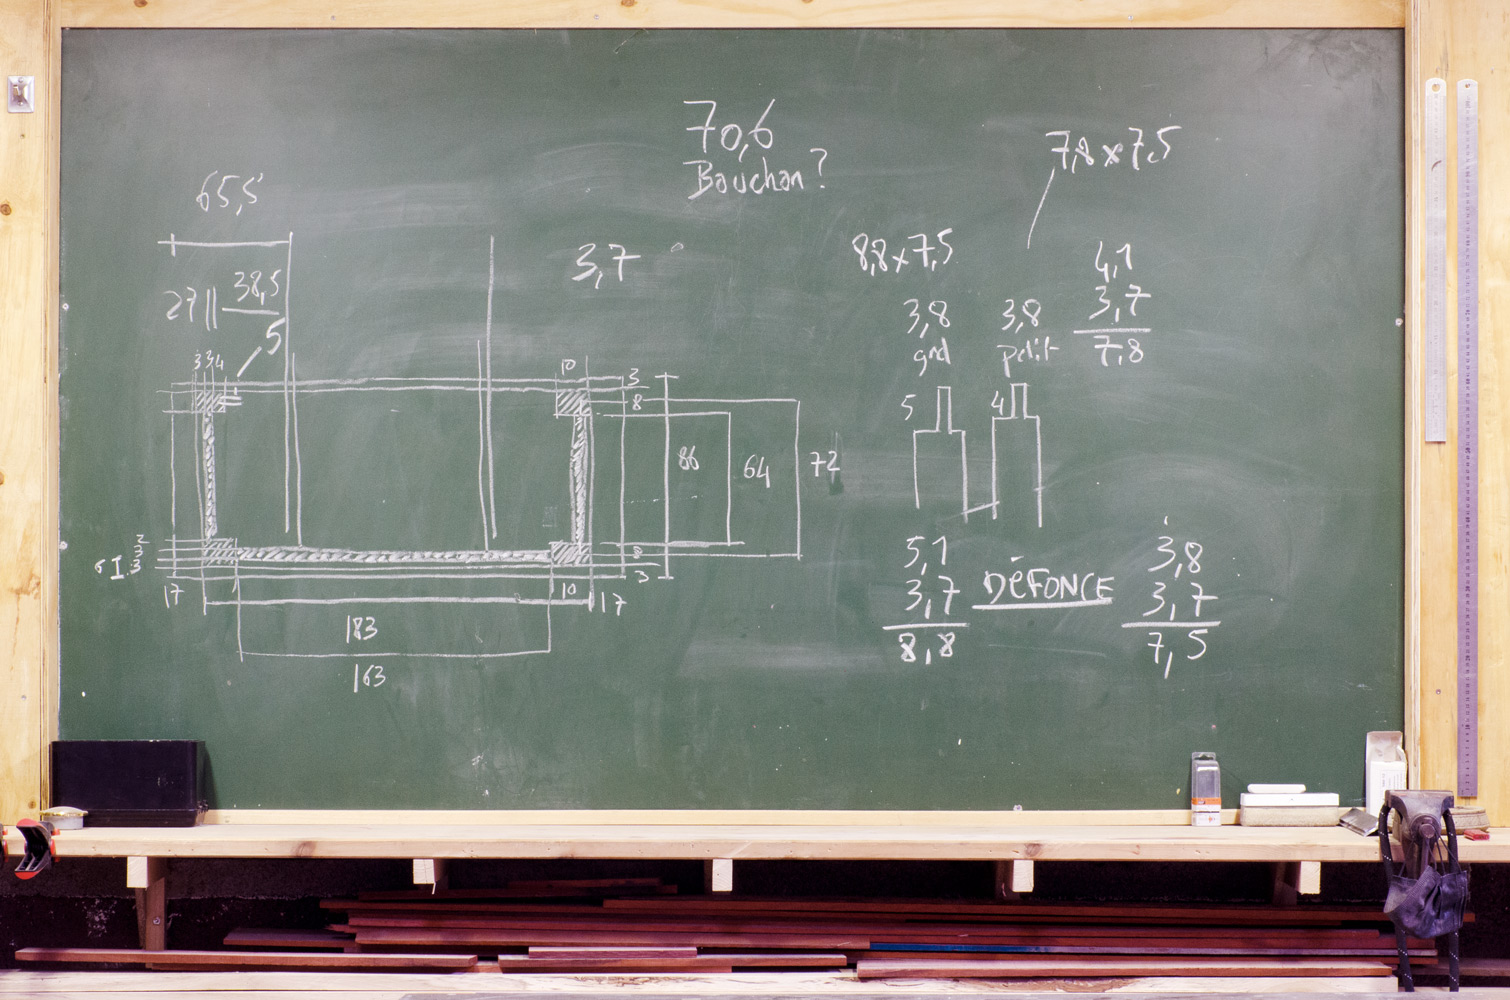 70,6
Bouchon ?
7,8 x 7,5
65,5
3,7
8,8 x 7,5
4,1
3,7
7,8
27 || 38,5
5
3,8
grd
3,8
petit
3 3 4
10
3
8
5
4
86
64
72
2
3
3
8
3
17
10
17
183
163
5,1
3,7
8,8
DéFONCE
3,8
3,7
7,5